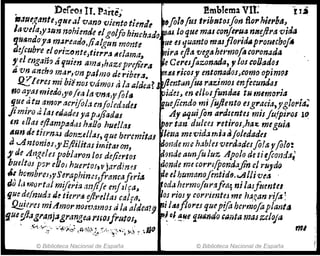 Defeos II. Parte,
nauegante, que al vano viento tiende
la vela, y aun nohiende el golfo hinchado,
quando ya mareado, si algun monte
descubre el orizonte, tierra aclama,
y el engaño à quien ama, haze prefiera
à vn ancho mar, on palmo de ribera.
Quieres mi bié nos vamos à la aldea?
no apas miedo, yo sola vna, y sola
que à tu amor acrisola en soledades
si miro à las edades ya passadas
en ellas estampadas hallo huellas
aun de tiernas donzellas, que heremitas
à Antonios, y Efilitas imitaron,
y de Angeles poblaron los desiertos
bueltos por ellos huertos, y jardines
de hombres, y Seraphines, franca feria
dò la mortal miseria anse en silça,
que desnuda de tierra estrellas calça.
Quieres mi Amor nos vamos à la aldea?
que esta granja grangea ricos frutos,
no
Emblema VII. 113
no solo sus tributos son flor hierba,
mas lo que mas conserua nuestra vida
que es quanto mas florida prouechosa
mira esta vega hermosa coronada
de Ceres sazonada, y los collados
mas ricos y entonados, como opimos
ostentan sus razimos en fecundas
vides, en ellos fundas tu memoria
que siendo mi sustento es gracia, y gloria.
Ay aqui son ardientes mis suspiros
por tau dulces retiros, haz me guia
lleua me vida mia à soledades
donde me hables verdades sola y solo:
donde aun su luz Apolo de ti esconda
donde me corresponda sin el ruydo
de el humano sentido. Alli vea
toda hermosura fea, ni las fuentes
los rios y corrientes me hagan risa
ni las flores que pisa hermosa planta
ni el aue quando canta mas zelosa
me
© Biblioteca Nacional de España
© Biblioteca Nacional de España